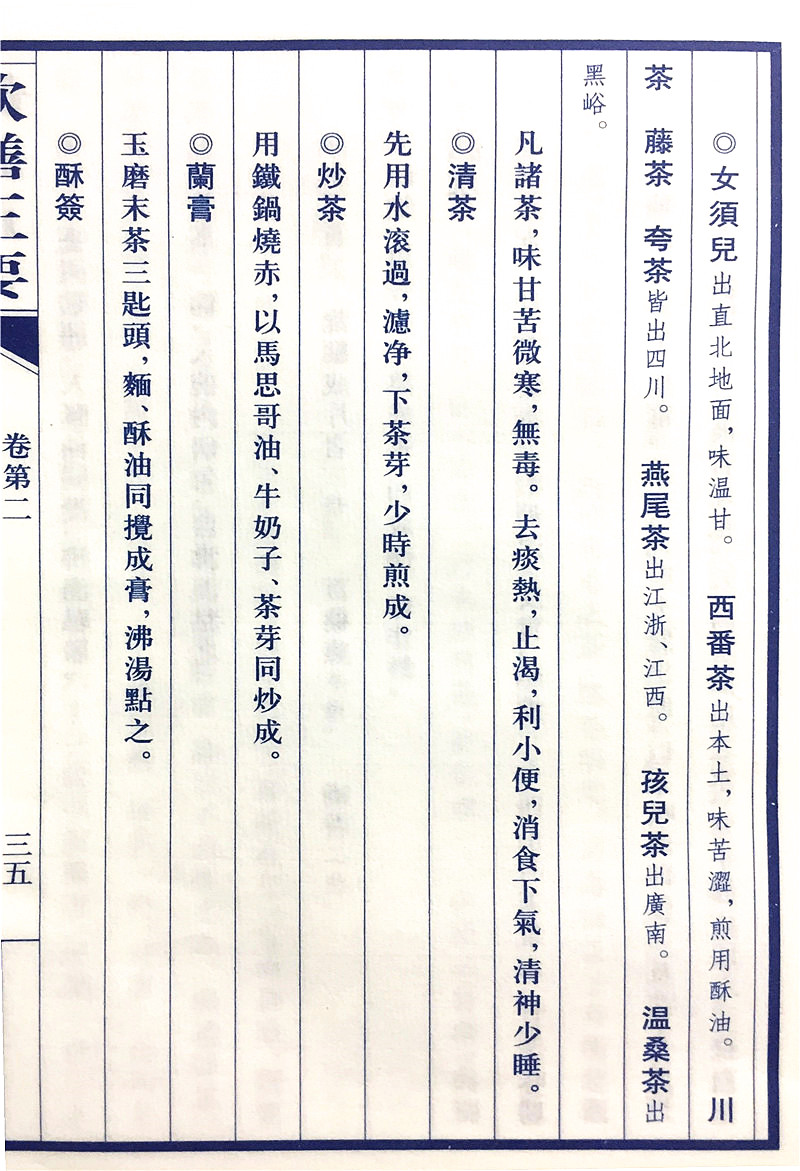 ◎女須兒出直北地面，味温甘。　西番茶出本土，味苦澀，煎用酥油。　川
茶　藤茶　夸茶皆出四川。　燕尾茶出江浙、江西。　孩兒茶出廣南。　温桑茶出
黑峪。
凡諸茶，味甘苦微寒，無毒。去痰熱，止渴，利小便，消食下氣，清神少睡。
◎清茶
先用水滚過，濾净，下茶芽，少時煎成。
◎炒茶
用鐵鍋燒赤，以馬思哥油、牛奶子、茶芽同炒成。
◎蘭膏
玉磨末茶三匙頭，麵、酥油同攪成膏，沸湯點之。
◎酥簽
飲膳正要
卷第二
三五